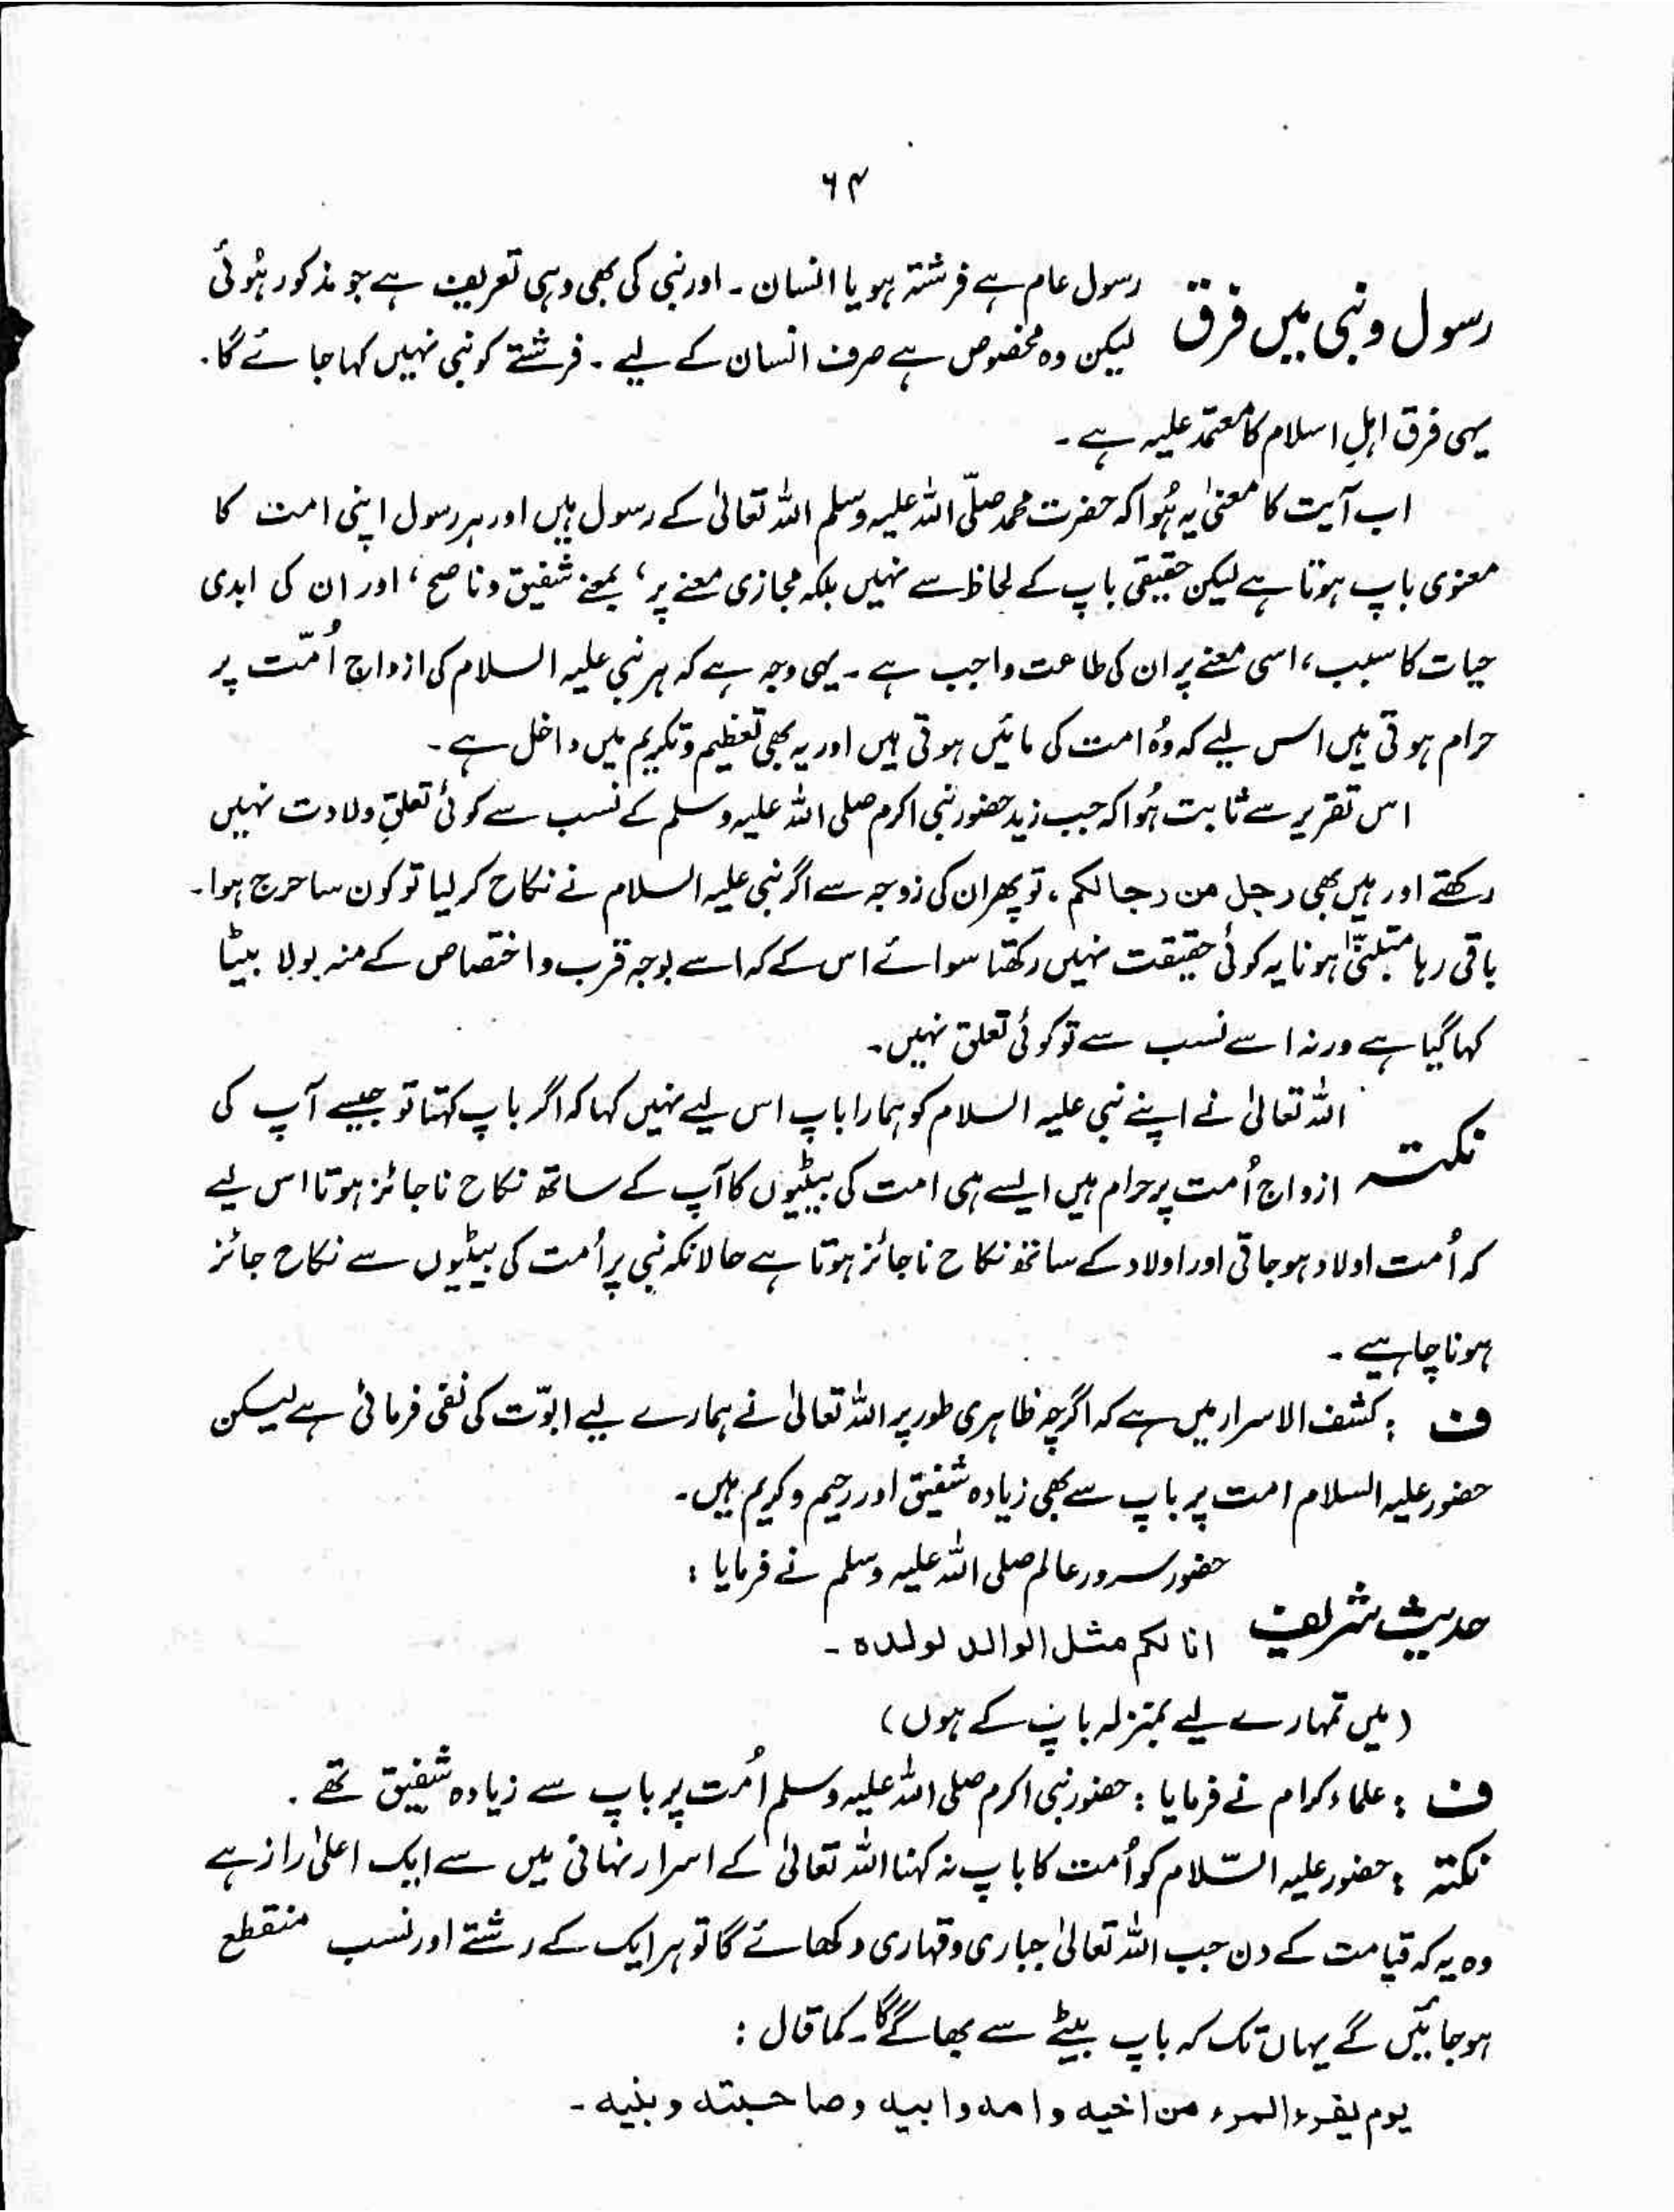 ۶۴
رسول و نبی میں فرق
رسول عام ہے فرشتہ ہو یا انسان۔ اور نبی کی بھی وہی تعریف ہے جو مذکور ہُوئی
لیکن وہ مخصوص ہے صرف انسان کے لیے۔ فرشتے کو نبی نہیں کہا جائے گا۔
یہی فرق اہلِ اسلام کا معتمد علیہ ہے۔
اب آیت کا معنیٰ یہ ہُوا کہ حضرت محمد صلّی اللہ علیہ وسلم اللہ تعالیٰ کے رسول ہیں اور ہر رسول اپنی امت کا
معنوی باپ ہوتا ہے لیکن حقیقی باپ کے لحاظ سے نہیں بلکہ مجازی معنے پر، بمعنے شفیق و ناصح، اور ان کی ابدی
حیات کا سبب، اسی معنے پر ان کی طاعت واجب ہے۔ یہی وجہ ہے کہ ہر نبی علیہ السلام کی ازواج اُمّت پر
حرام ہوتی ہیں اس لیے کہ وُہ امت کی مائیں ہوتی ہیں اور یہ بھی تعظیم و تکریم میں داخل ہے۔
اس تقریر سے ثابت ہُوا کہ جب زید حضور نبی اکرم صلی اللہ علیہ وسلم کے نسب سے کوئی تعلقِ ولادت نہیں
رکھتے اور ہیں بھی رجل من رجالکم، تو پھر ان کی زوجہ سے اگر نبی علیہ السلام نے نکاح کر لیا تو کون سا حرج ہوا۔
باقی رہا متبنّیٰ ہونا یہ کوئی حقیقت نہیں رکھتا سوائے اس کے کہ اسے بوجہ قرب و اختصاص کے منہ بولا بیٹا
کہا گیا ہے ورنہ اسے نسب سے تو کوئی تعلق نہیں۔
نکتہ
اللہ تعالیٰ نے اپنے نبی علیہ السلام کو ہمارا باپ اس لیے نہیں کہا کہ اگر باپ کہتا تو جیسے آپ کی
ازواج اُمت پر حرام ہیں ایسے ہی امت کی بیٹیوں کا آپ کے ساتھ نکاح ناجائز ہوتا اس لیے
کہ اُمت اولاد ہو جاتی اور اولاد کے ساتھ نکاح ناجائز ہوتا ہے حالانکہ نبی پر اُمت کی بیٹیوں سے نکاح جائز
ہونا چاہیے۔
ف : کشف الاسرار میں ہے کہ اگرچہ ظاہری طور پر اللہ تعالیٰ نے ہمارے لیے ابوّت کی نفی فرمائی ہے لیکن
حضور علیہ السلام امت پر باپ سے بھی زیادہ شفیق اور رحیم و کریم ہیں۔
حدیث شریف
حضور سرور عالم صلی اللہ علیہ وسلم نے فرمایا :
انا لکم مثل الوالد لولدہ۔
(میں تمہارے لیے بمنزلہ باپ کے ہوں)
ف : علماء کرام نے فرمایا : حضور نبی اکرم صلی اللہ علیہ وسلم اُمت پر باپ سے زیادہ شفیق تھے۔
نکتہ : حضور علیہ السّلام کو اُمت کا باپ نہ کہنا اللہ تعالیٰ کے اسرار نہانی میں سے ایک اعلیٰ راز ہے
وہ یہ کہ قیامت کے دن جب اللہ تعالیٰ جباری و قہاری دکھائے گا تو ہر ایک کے رشتے اور نسب منقطع
ہو جائیں گے یہاں تک کہ باپ بیٹے سے بھاگے گا۔ کما قال :
یوم یفرء المرء من اخیہ و امہ و ابیہ و صاحبتہ و بنیہ۔